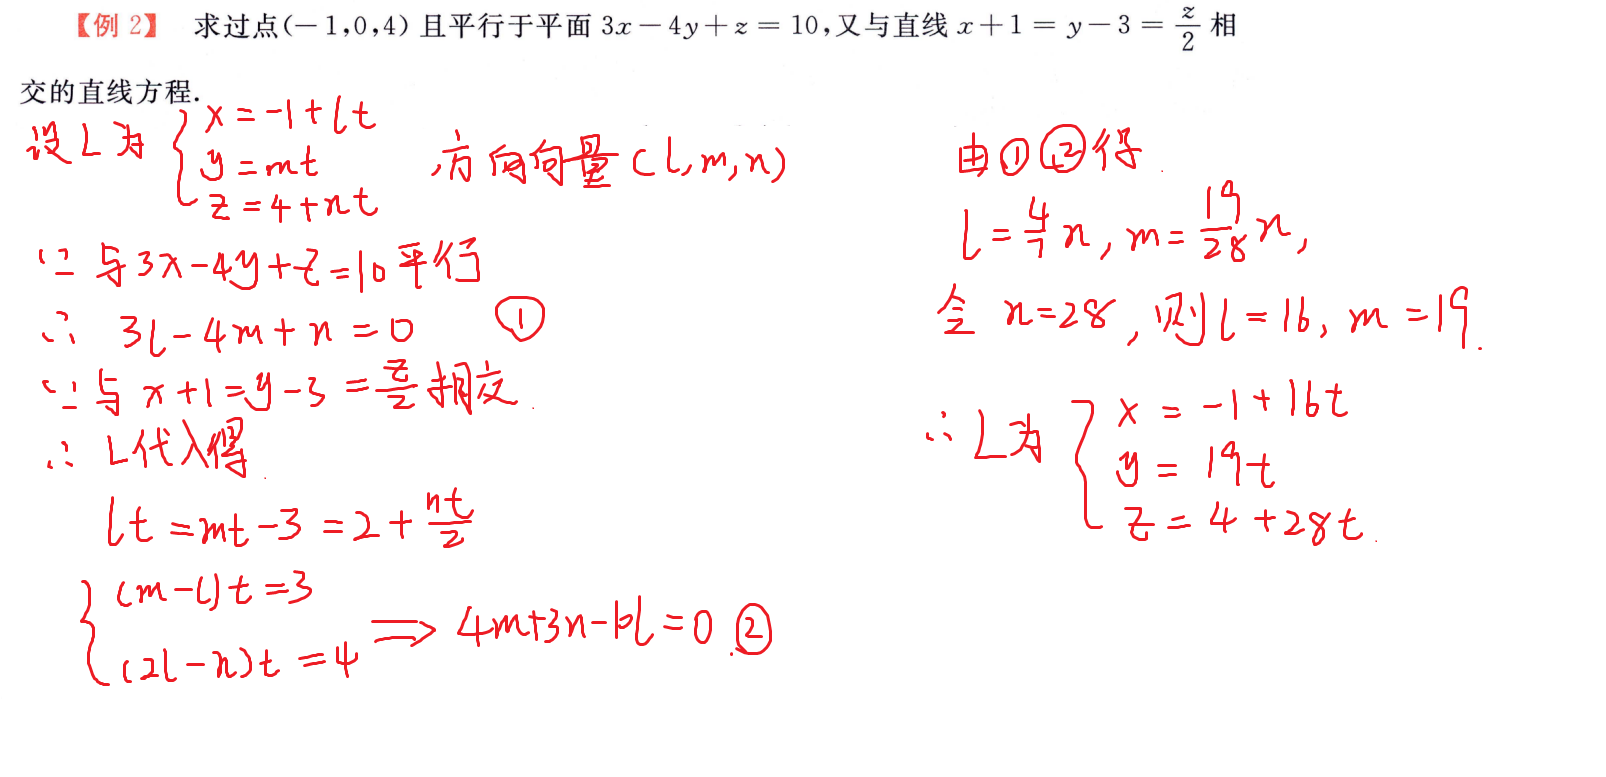 【例 2】 求过点(−1,0,4) 且平行于平面 3x−4y+z=10,又与直线 x+1=y−3=z/2 相
交的直线方程.
设L为 { x=-1+lt
y=mt
z=4+nt
,方向向量(l,m,n)
∵ 与3x-4y+z=10平行
∴ 3l-4m+n=0 ①
∵与 x+1=y-3=z/2 相交.
∴ L代入得
lt=mt-3=2+nt/2
{ (m-l)t=3
(2l-n)t=4
⟹ 4m+3n-10l=0 ②
由①②得
l=4/7 n, m=19/28 n,
令 n=28, 则l=16, m=19.
∴L为 { x=-1+16t
y=19t
z=4+28t.